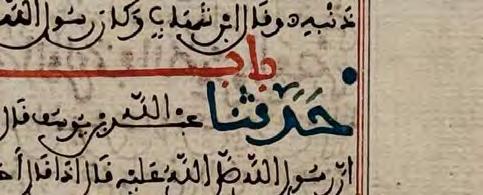 ذنبه وقال ابن شهاب وكان رسول الله
باب
حدثنا عبد الله بن يوسف قال
ان رسول الله صلى الله عليه قال اذا قال